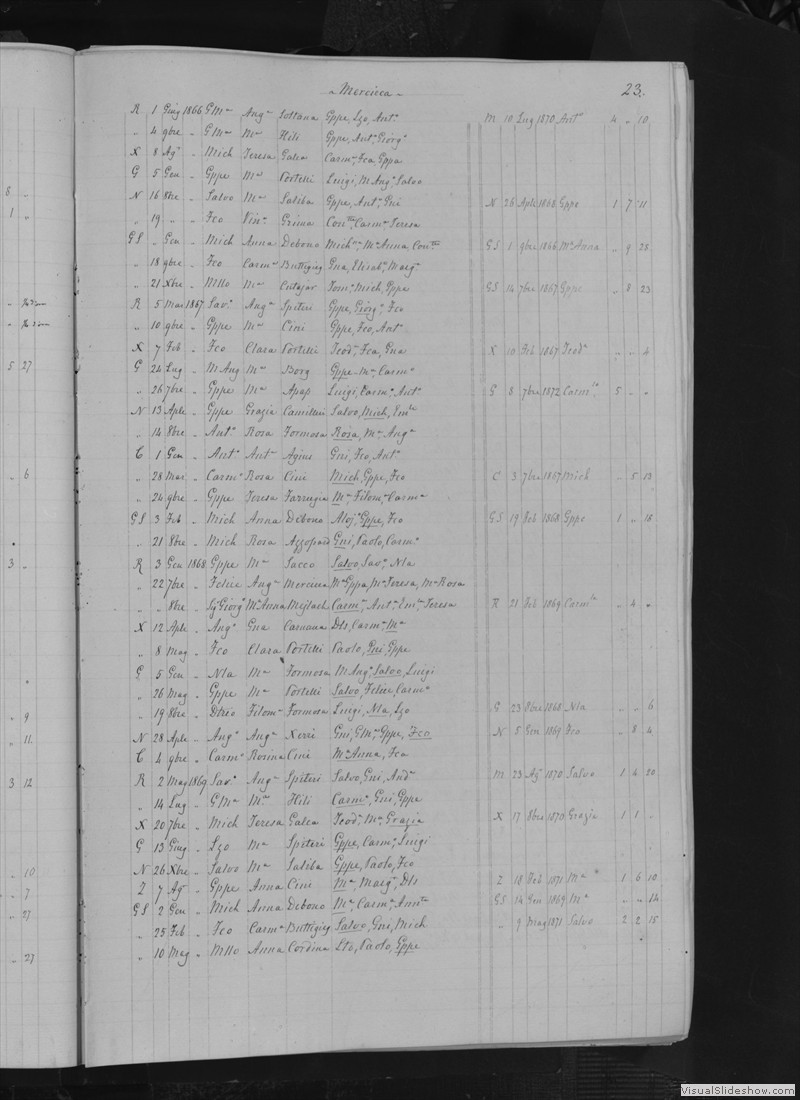 Mercieca
23.
R 1 Giug 1866 G Mª Angª Sultana Gppe, Lzo, Antº M 10 Lug 1870 Antº 4 „ 10
„ 4 9bre „ G Mª Mª Hili Gppe, Antº, Giorgº
X 8 Agº „ Mich Teresa Galea Carmª, Fca, Gppa
G 5 Gen „ Gppe Mª Portelli Luigi, M Angº, Salvo
8 „ N 16 8bre „ Salvo Mª Saliba Gppe, Antº, Gni N 26 Aple 1868 Gppe 1 7 11
1 „ „ 19 „ „ Fco Vinª Grima Conᵗᵃ, Carmª, Teresa
GS „ Gen „ Mich Anna Debono Michᵃ, Mª Anna, Conᵗᵃ GS 1 9bre 1866 Mª Anna „ 9 28
„ 18 9bre „ Fco Carmª Buttigieg Gna, Elisabª, Margª
„ 21 Xbre „ Mllo Mª Cutajar Tomº, Mich, Gppe GS 14 7bre 1867 Gppe „ 8 23
R 5 Mar 1867 Savº Angª Spiteri Gppe, Giorgº, Fco
„ 10 9bre „ Gppe Mª Cini Gppe, Fco, Antº
X 7 Feb „ Fco Clara Portelli Teodª, Fca, Gna X 10 Feb 1867 Teodª „ „ 4
5 27 G 24 Lug „ M Ang Mª Borg Gppe Mª, Carmº
„ 26 7bre „ Gppe Mª Apap Luigi, Carmº, Antº G 8 7bre 1872 Carmˡᵒ 5 „ „
N 13 Aple „ Gppe Grazia Camilleri Salvo, Mich, Emˡᵉ
„ 14 8bre „ Antº Rosa Formosa Rosa, Mª, Angª
C 1 Gen „ Antº Antª Agius Gni, Fco, Antº
„ 6 „ 28 Mar „ Carmº Rosa Cini Mich, Gppe, Fco C 3 7bre 1867 Mich „ 5 13
„ 24 9bre „ Gppe Teresa Farrugia Mª, Filomª, Carmª
GS 3 Feb „ Mich Anna Debono Alojº, Gppe, Fco GS 19 Feb 1868 Gppe 1 „ 16
„ 21 8bre „ Mich Rosa Azzopardi Gni, Paolo, Carmº
3 „ R 3 Gen 1868 Gppe Mª Sacco Salvo, Savº, Nla
„ 22 7bre „ Felice Angª Mercieca Mª Gppa, Mª Teresa, Mª Rosa
„ „ 8bre „ Sʳ Giorgº Mª Anna Mejlach Carmª, Antª, Emˡᵃ, Teresa R 21 Feb 1869 Carmˡᵃ „ 4 „
X 12 Aple „ Angº Gna Caruana Dls, Carmª, Mª
„ 8 Mag „ Fco Clara Portelli Paolo, Gni, Gppe
G 5 Gen „ Nla Mª Formosa M Angº, Salvo, Luigi
„ 26 Mag „ Gppe Mª Portelli Salvo, Felice, Carmº
„ 9 „ 19 8bre „ Dtrio Filomª Formosa Luigi, Nla, Lzo G 23 8bre 1868 Nla „ „ 6
„ 11. N 28 Aple „ Angº Angª Xerri Gni, G Mª, Gppe, Fco N 5 Gen 1869 Fco „ 8 4
C 4 9bre „ Carmº Rosina Cini Mª Anna, Fca
3 12 R 2 Mag 1869 Savº Angª Spiteri Salvo, Gni, Andª M 23 Agº 1870 Salvo 1 4 20
„ 14 Lug „ G Mª Mª Hili Carmº, Gni, Gppe
X 20 7bre „ Mich Teresa Galea Teodª, Mª, Grazia X 17 8bre 1870 Grazia 1 1 „
G 13 Giug „ Lzo Mª Spiteri Gppe, Carmº, Luigi
„ 10 N 26 Xbre „ Salvo Mª Saliba Gppe, Paolo, Fco
„ 7 Z 7 Agº „ Gppe Anna Cini Mª, Margª, Dls Z 18 Feb 1871 Mª 1 6 10
„ 27 GS 2 Gen „ Mich Anna Debono Mª, Carmª, Annᵗᵃ GS 14 Gen 1869 Mª „ „ 14
„ 25 Feb „ Fco Carmª Buttigieg Salvo, Gni, Mich „ 9 Mag 1871 Salvo 2 2 15
„ 27 „ 10 Mag „ Mllo Anna Cordina Lto, Paolo, Gppe
VisualSlideshow.com